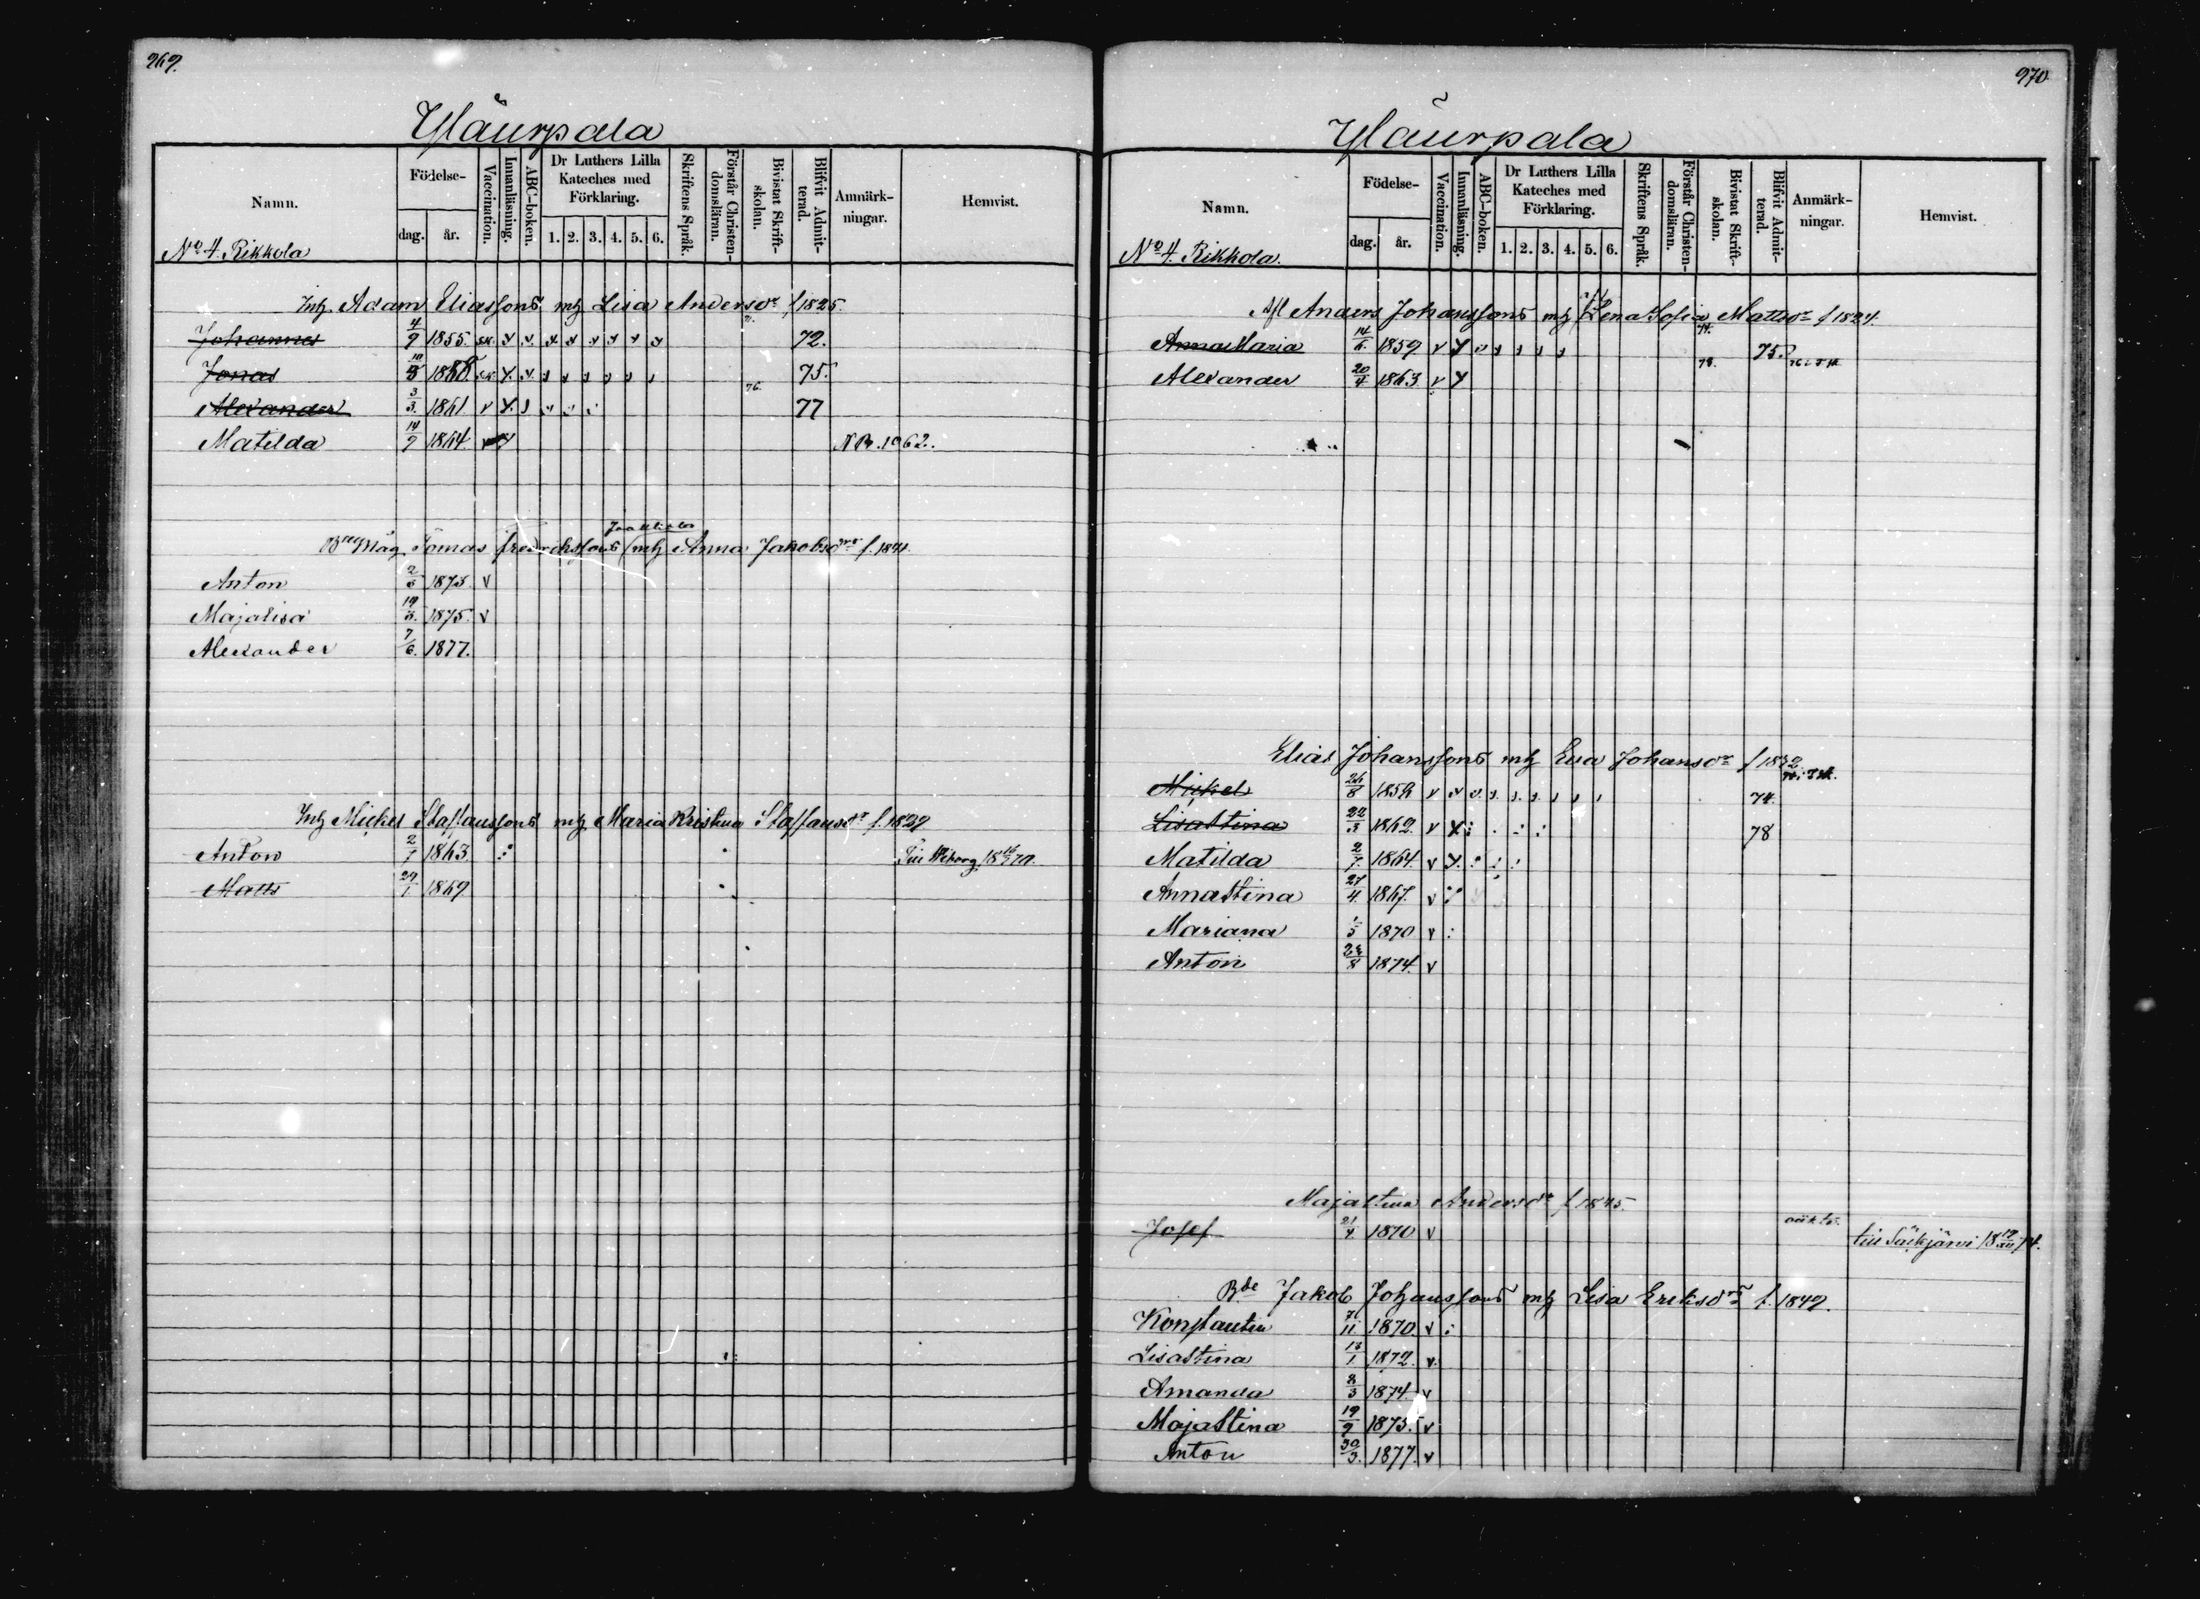 269.
Yläurpala
Namn.
Födelse-
dag.
år.
Vaccination.
Innanläsning.
ABC-boken.
Dr Luthers Lilla
Kateches med
Förklaring.
1. 2. 3. 4. 5. 6.
Skriftens Språk.
Förstår Christen-
domsläran.
Bivistat Skrift-
skolan.
Blifvit Admit-
terad.
Anmärk-
ningar.
Hemvist.
No 4. Rikkola
Inh Adam Eliassons mh Lisa Andersdr f 1825.
Johannes 4/9 1855. sk. 72.
Jonas 75.
76.
Alexander 3/3. 1861. v 77
Matilda 14/9 1864. N B. 1962.
Måg Tomas Fredrikssons mh Anna Jakobsdr f. 1871.
Anton 2/3 1873. v
Majalisa 19/3. 1875. v
Alexander 7/6. 1877.
Inh Mickel Staffanssons mh Maria Kristina Staffansdr f. 1829
Anton 2/7 1863. Till Wiborg
Matts 29/1 1869
970
Yläurpala
Namn.
Födelse-
dag.
år.
Vaccination.
Innanläsning.
ABC-boken.
Dr Luthers Lilla
Kateches med
Förklaring.
1. 2. 3. 4. 5. 6.
Skriftens Språk.
Förstår Christen-
domsläran.
Bivistat Skrift-
skolan.
Blifvit Admit-
terad.
Anmärk-
ningar.
Hemvist.
No 4. Rikkola.
Anders Johanssons mh Lena Sofia Mattsdr f 1824.
AnnaMaria 14/6. 1859 v 75.
78.
Alexander 20/4 1863 v
Elias Johanssons mh Eva Johansdr f 1832
Mickel 26/8 1858 v 74.
Lisastina 22/3 1862. v 78
Matilda 2/7. 1864. v
Annastina 27/4. 1867. v
Mariana 1870 v
Anton 1874. v
Majastina Andersdr f 1845.
Josef 21/4 1870 v oäkta. till Säkjärvi 18 19/XII 74.
Jakob Johanssons mh Lisa Eriksdr f. 1849.
Konstantin 1870. v
Lisastina 13/1 1872. v
Amanda 8/3 1874. v
Majastina 19/9 1875. v
Anton 30/3. 1877. v